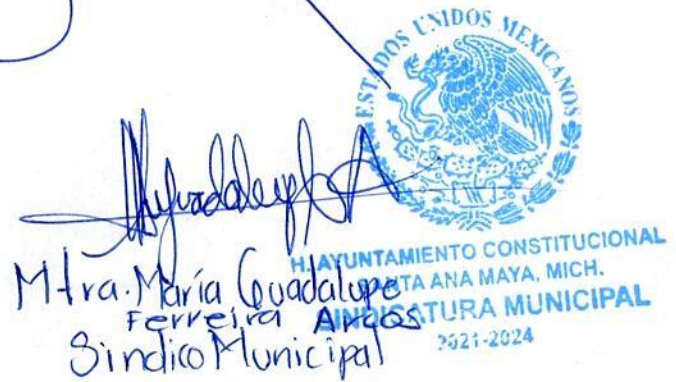 ESTADOS UNIDOS MEXICANOS
H. AYUNTAMIENTO CONSTITUCIONAL
SANTA ANA MAYA, MICH.
SINDICATURA MUNICIPAL
2021-2024
Mtra. María Guadalupe
Ferreira Arcos
Sindico Municipal